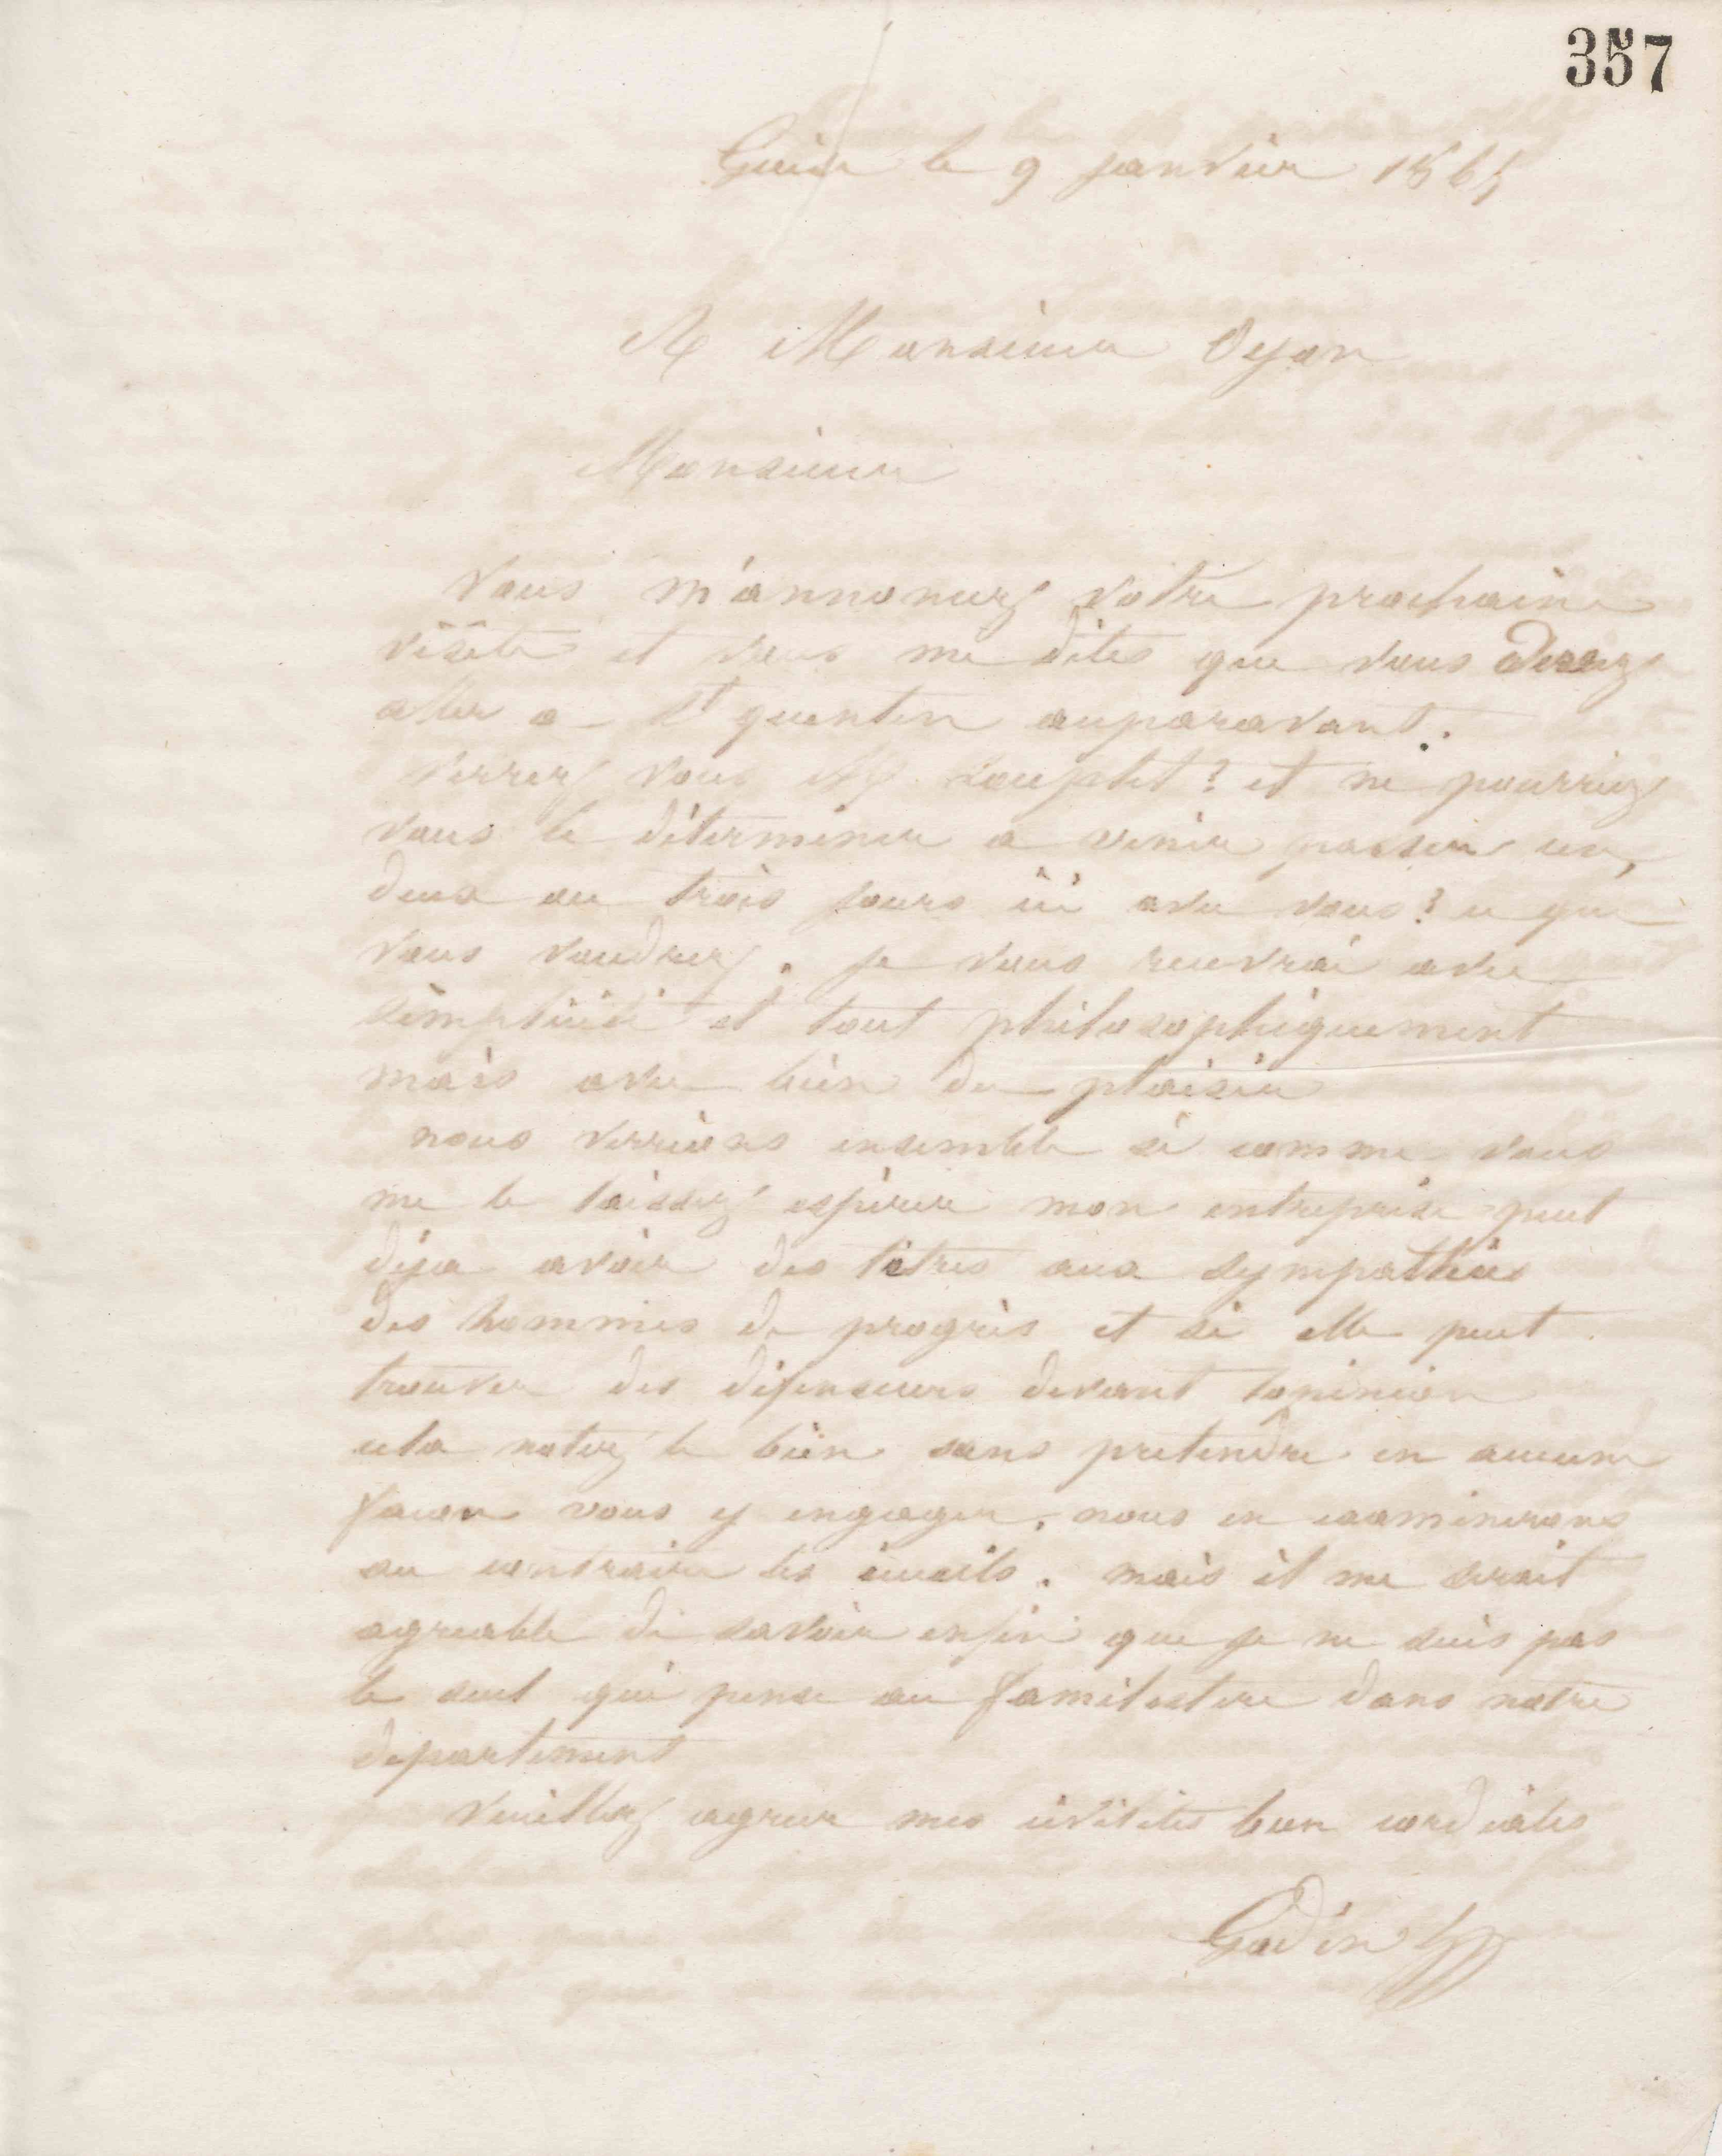 357
Guise le 9 janvier 1865
A Monsieur Oyon
Monsieur
Vous m'annoncez votre prochaine
visite et vous me dites que vous devez
aller a St quentin auparavant.
verrez vous Mr Souplet? et ne pourriez
vous le déterminer a venir passer un,
deux ou trois jours ici avec vous? ce que
vous voudrez. je vous recevrai avec
simplicité et tout philosophiquement
mais avec bien du plaisir
nous verrions ensemble si comme vous
me le laissez espérer mon entreprise peut
déja avoir des titres aux sympathies
des hommes de progrès et si elle peut
trouver des défenseurs devant lopinion
cela notez le bien sans pretendre en aucune
facon vous y engager. nous en examinerons
au contraire les écueils. mais il me serait
agreable de savoir enfin que je ne suis pas
le seul qui pense au familistere dans notre
departement
Veuillez agreer mes civilités bien cordiales
Godin